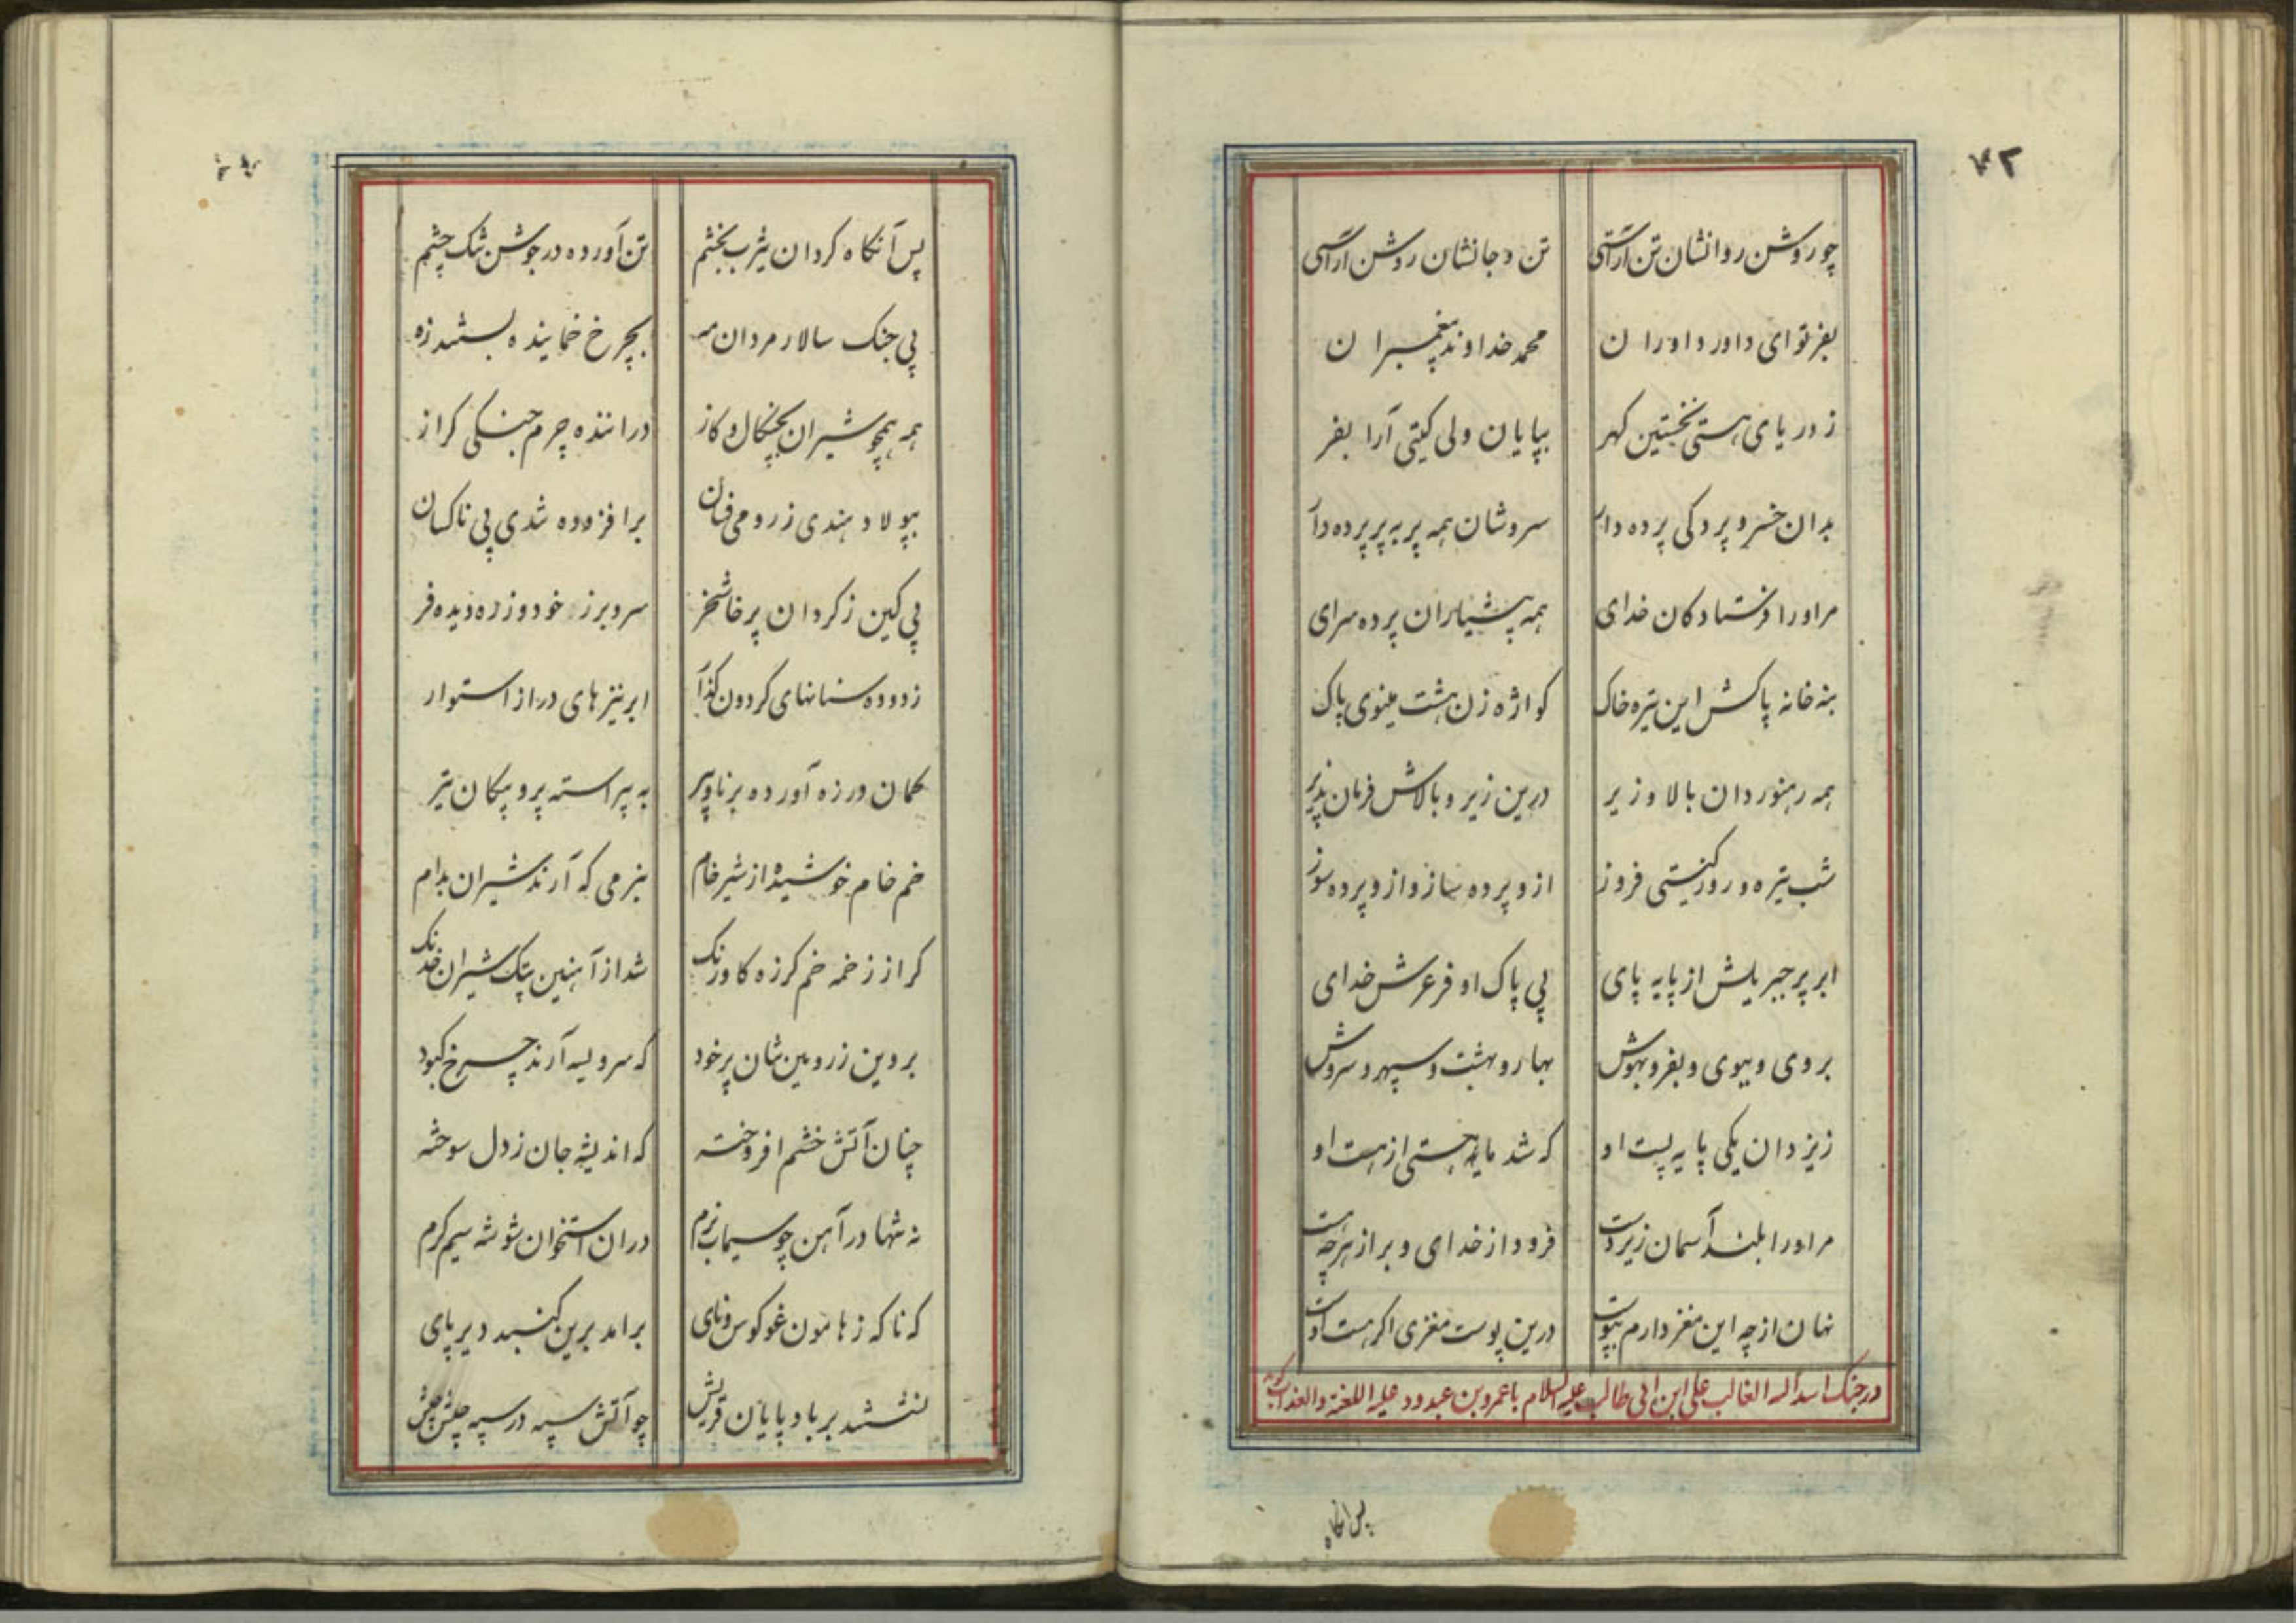 ۴۲
چو روشن روانشان تن آراستی تن و جانشان روشن آراستی
بفر تو ای داور داوران محمد خداوند پیغمبران
ز دریای هستی نخستین کهر بپایان ولی کیتی آرا بفر
بدان خسرو پردکی پرده دار سروشان همه پر به پر پرده دار
مر او را فرستادکان خدای همه پیشیاران پرده سرای
بنه خانه پاکش این تیره خاک کواژه زن هشت مینوی پاک
همه رهنوردان بالا و زیر درین زیر و بالاش فرمان پذیر
شب تیره و روز کیتی فروز ازو پرده ساز و ازو پرده سوز
ابر پر جبریلش از پایه پای پی پاک او فر عرش خدای
بروی و ببوی و بفر و بهوش بهار و بهشت و سپهر و سروش
ز یزدان یکی پایه پست او که شد مایه هستی از هست او
مر او را بلند آسمان زیردست فرود از خدای و بر از هرچه هست
نهان از چه این مغز دارم بپوست درین پوست مغزی اکر هست اوست
در جنک اسد اله الغالب علی ابن ابی طالب علیه السلام با عمرو بن عبدود علیه اللعنة والعذاب کوید
پس آنکاه
پس آنکاه کردان یثرب بخشم تن آورده در جوشن تنک چشم
پی جنک سالار مردان مه بچرخ خماینده بستند زه
همه همچو شیران بچنکال و کاز دراننده چرم جنکی کراز
بپولاد هندی ز رومی فسان برافزوده تندی پی ناکسان
پی کین ز کردان پرخاشخر سر و برز خود و زره دیده فر
زدوده سنانهای کردون کذار ابر نیزهای دراز استوار
کمان در زه آورده برنا و پیر به پیراسته پر و پیکان تیر
خم خام خوشیده از شیر خام بنرمی که آرند شیران بدام
کراز زخمه خم کرزه کاورنک شد از آهنین پتک شیران خدنک
بروین ز رومین شان پر خود که سر و یسه آرند چرخ کبود
چنان آتش خشم افروخته که اندیشه جان ز دل سوخته
نه تنها در آهن چو سیماب نرم در آن استخوان شوشه سیم کرم
که ناکه ز هامون غو کوس و نای برآمد برین کنبد دیرپای
نشستند بر بادپایان قریش چو آتش سپه در سپه جیش جیش